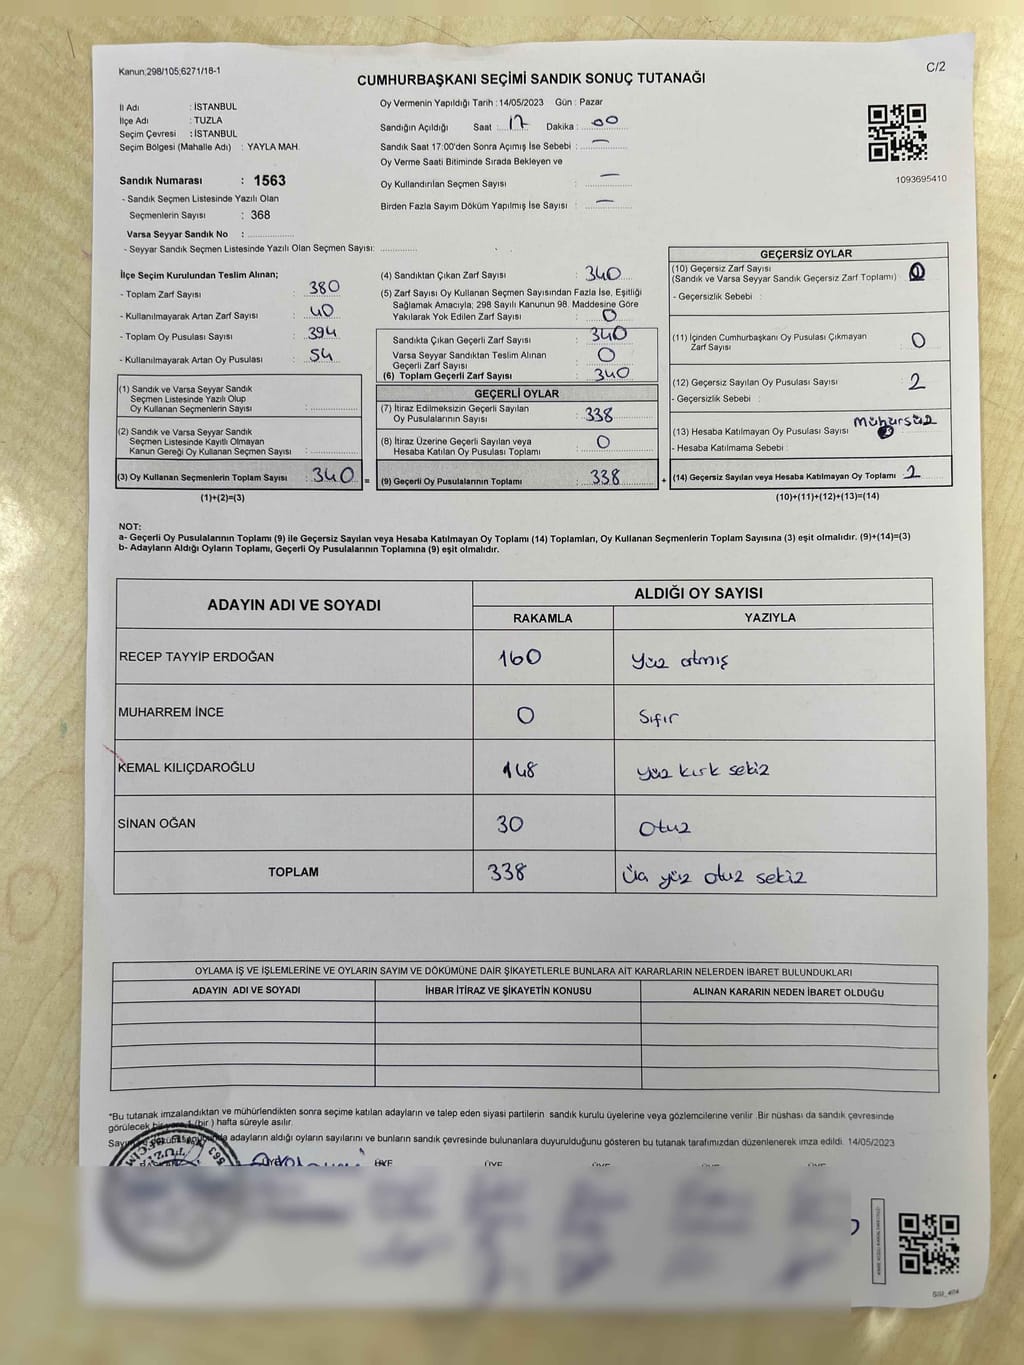 Kanun,298/105;6271/18-1
C/2
CUMHURBAŞKANI SEÇİMİ SANDIK SONUÇ TUTANAĞI
İl Adı : İSTANBUL
İlçe Adı : TUZLA
Seçim Çevresi : İSTANBUL
Seçim Bölgesi (Mahalle Adı) : YAYLA MAH.
Oy Vermenin Yapıldığı Tarih : 14/05/2023 Gün : Pazar
Sandığın Açıldığı Saat : 17 Dakika : 00
Sandık Saat 17:00'den Sonra Açımış İse Sebebi : —
Oy Verme Saati Bitiminde Sırada Bekleyen ve
Oy Kullandırılan Seçmen Sayısı : —
Birden Fazla Sayım Döküm Yapılmış İse Sayısı : —
1093695410
Sandık Numarası : 1563
- Sandık Seçmen Listesinde Yazılı Olan
Seçmenlerin Sayısı : 368
Varsa Seyyar Sandık No :
- Seyyar Sandık Seçmen Listesinde Yazılı Olan Seçmen Sayısı:
İlçe Seçim Kurulundan Teslim Alınan;
- Toplam Zarf Sayısı : 380
- Kullanılmayarak Artan Zarf Sayısı : 40
- Toplam Oy Pusulası Sayısı : 394
- Kullanılmayarak Artan Oy Pusulası : 54
(1) Sandık ve Varsa Seyyar Sandık
Seçmen Listesinde Yazılı Olup
Oy Kullanan Seçmenlerin Sayısı :
(2) Sandık ve Varsa Seyyar Sandık
Seçmen Listesinde Kayıtlı Olmayan
Kanun Gereği Oy Kullanan Seçmen Sayısı :
(3) Oy Kullanan Seçmenlerin Toplam Sayısı : 340 =
(1)+(2)=(3)
(4) Sandıktan Çıkan Zarf Sayısı : 340
(5) Zarf Sayısı Oy Kullanan Seçmen Sayısından Fazla İse, Eşitliği
Sağlamak Amacıyla; 298 Sayılı Kanunun 98. Maddesine Göre
Yakılarak Yok Edilen Zarf Sayısı : 0
Sandıkta Çıkan Geçerli Zarf Sayısı : 340
Varsa Seyyar Sandıktan Teslim Alınan
Geçerli Zarf Sayısı : 0
(6) Toplam Geçerli Zarf Sayısı : 340
GEÇERLİ OYLAR
(7) İtiraz Edilmeksizin Geçerli Sayılan
Oy Pusulalarının Sayısı : 338
(8) İtiraz Üzerine Geçerli Sayılan veya
Hesaba Katılan Oy Pusulası Toplamı : 0
(9) Geçerli Oy Pusulalarının Toplamı : 338 +
GEÇERSİZ OYLAR
(10) Geçersiz Zarf Sayısı
(Sandık ve Varsa Seyyar Sandık Geçersiz Zarf Toplamı) :
- Geçersizlik Sebebi :
(11) İçinden Cumhurbaşkanı Oy Pusulası Çıkmayan
Zarf Sayısı : 0
(12) Geçersiz Sayılan Oy Pusulası Sayısı : 2
- Geçersizlik Sebebi :
(13) Hesaba Katılmayan Oy Pusulası Sayısı : mühürsüz
- Hesaba Katılmama Sebebi :
(14) Geçersiz Sayılan veya Hesaba Katılmayan Oy Toplamı : 2
(10)+(11)+(12)+(13)=(14)
NOT:
a- Geçerli Oy Pusulalarının Toplamı (9) ile Geçersiz Sayılan veya Hesaba Katılmayan Oy Toplamı (14) Toplamları, Oy Kullanan Seçmenlerin Toplam Sayısına (3) eşit olmalıdır. (9)+(14)=(3)
b- Adayların Aldığı Oyların Toplamı, Geçerli Oy Pusulalarının Toplamına (9) eşit olmalıdır.
ADAYIN ADI VE SOYADI ALDIĞI OY SAYISI
RAKAMLA YAZIYLA
RECEP TAYYİP ERDOĞAN 160 Yüz atmış
MUHARREM İNCE 0 Sıfır
KEMAL KILIÇDAROĞLU 148 yüz kırk sekiz
SİNAN OĞAN 30 Otuz
TOPLAM 338 Üç yüz otuz sekiz
OYLAMA İŞ VE İŞLEMLERİNE VE OYLARIN SAYIM VE DÖKÜMÜNE DAİR ŞİKAYETLERLE BUNLARA AİT KARARLARIN NELERDEN İBARET BULUNDUKLARI
ADAYIN ADI VE SOYADI İHBAR İTİRAZ VE ŞİKAYETİN KONUSU ALINAN KARARIN NEDEN İBARET OLDUĞU
*Bu tutanak imzalandıktan ve mühürlendikten sonra seçime katılan adayların ve talep eden siyasi partilerin sandık kurulu üyelerine veya gözlemcilerine verilir .Bir nüshası da sandık çevresinde
görülecek bir yere 1 (bir ) hafta süreyle asılır.
adayların aldığı oyların sayılarını ve bunların sandık çevresinde bulunanlara duyurulduğunu gösteren bu tutanak tarafımızdan düzenlenerek imza edildi. 14/05/2023
ÜYE ÜYE ÜYE ÜYE ÜYE